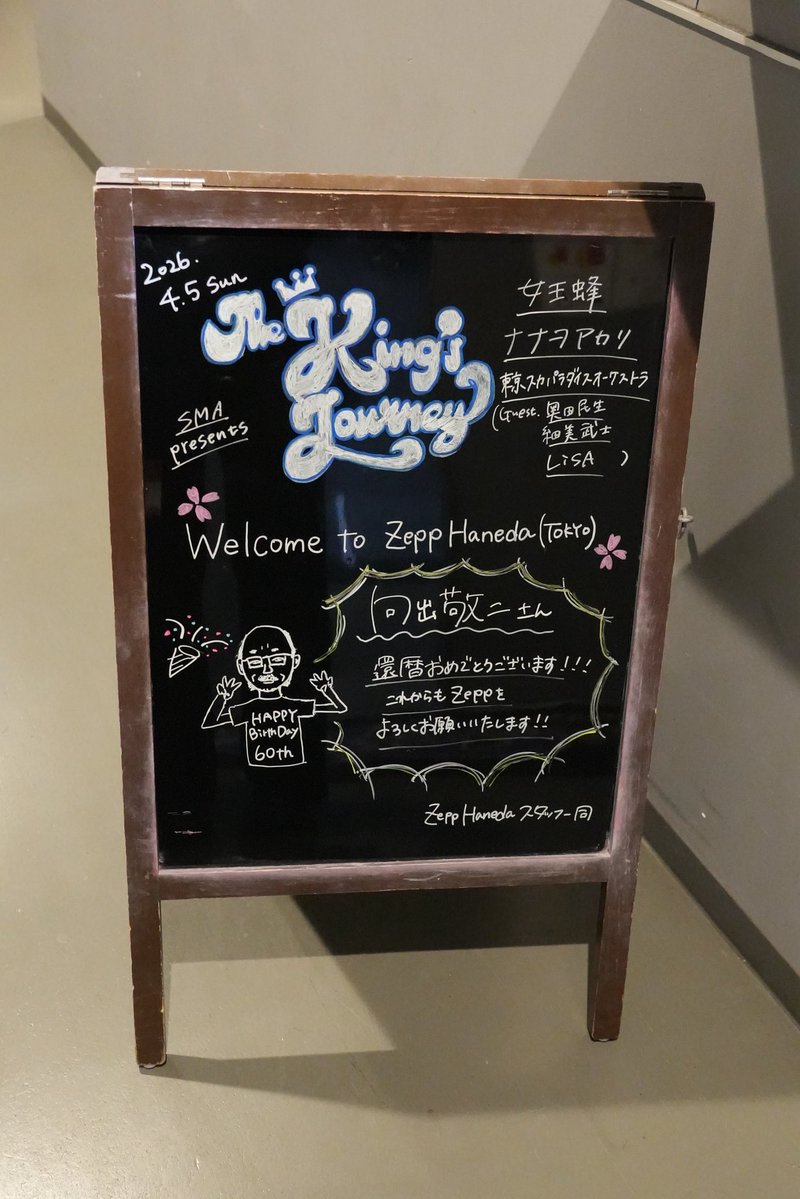 2026.
4.5 sun
The
King's
Journey
SMA
presents
女王蜂
ナナヲアカリ
東京スカパラダイスオーケストラ
(Guest. 奥田民生
細美武士
LiSA )
Welcome to Zepp Haneda (TOKYO)
向出敬二さん
還暦おめでとうございます!!!
これからもZeppを
よろしくお願いいたします!!
HAPPY
BirthDay
60th
Zepp Haneda スタッフ一同